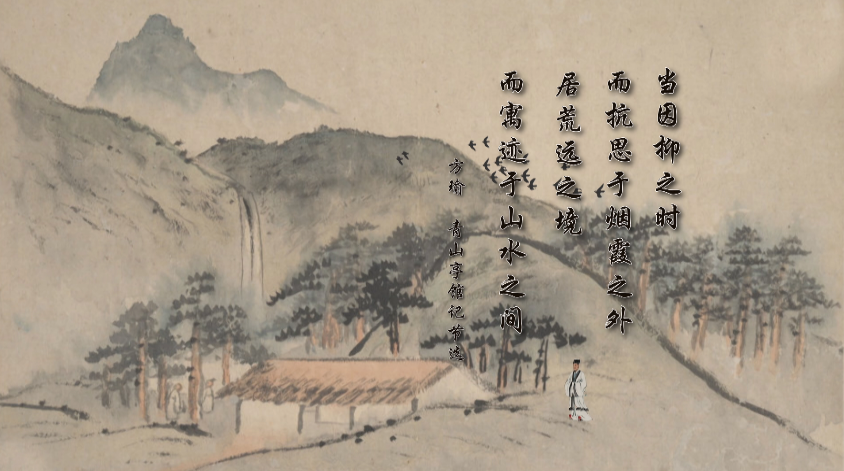 当因抑之时
而抗思于烟霞之外
居荒远之境
而寓迹于山水之间
方瑜 青山亭馆记节选